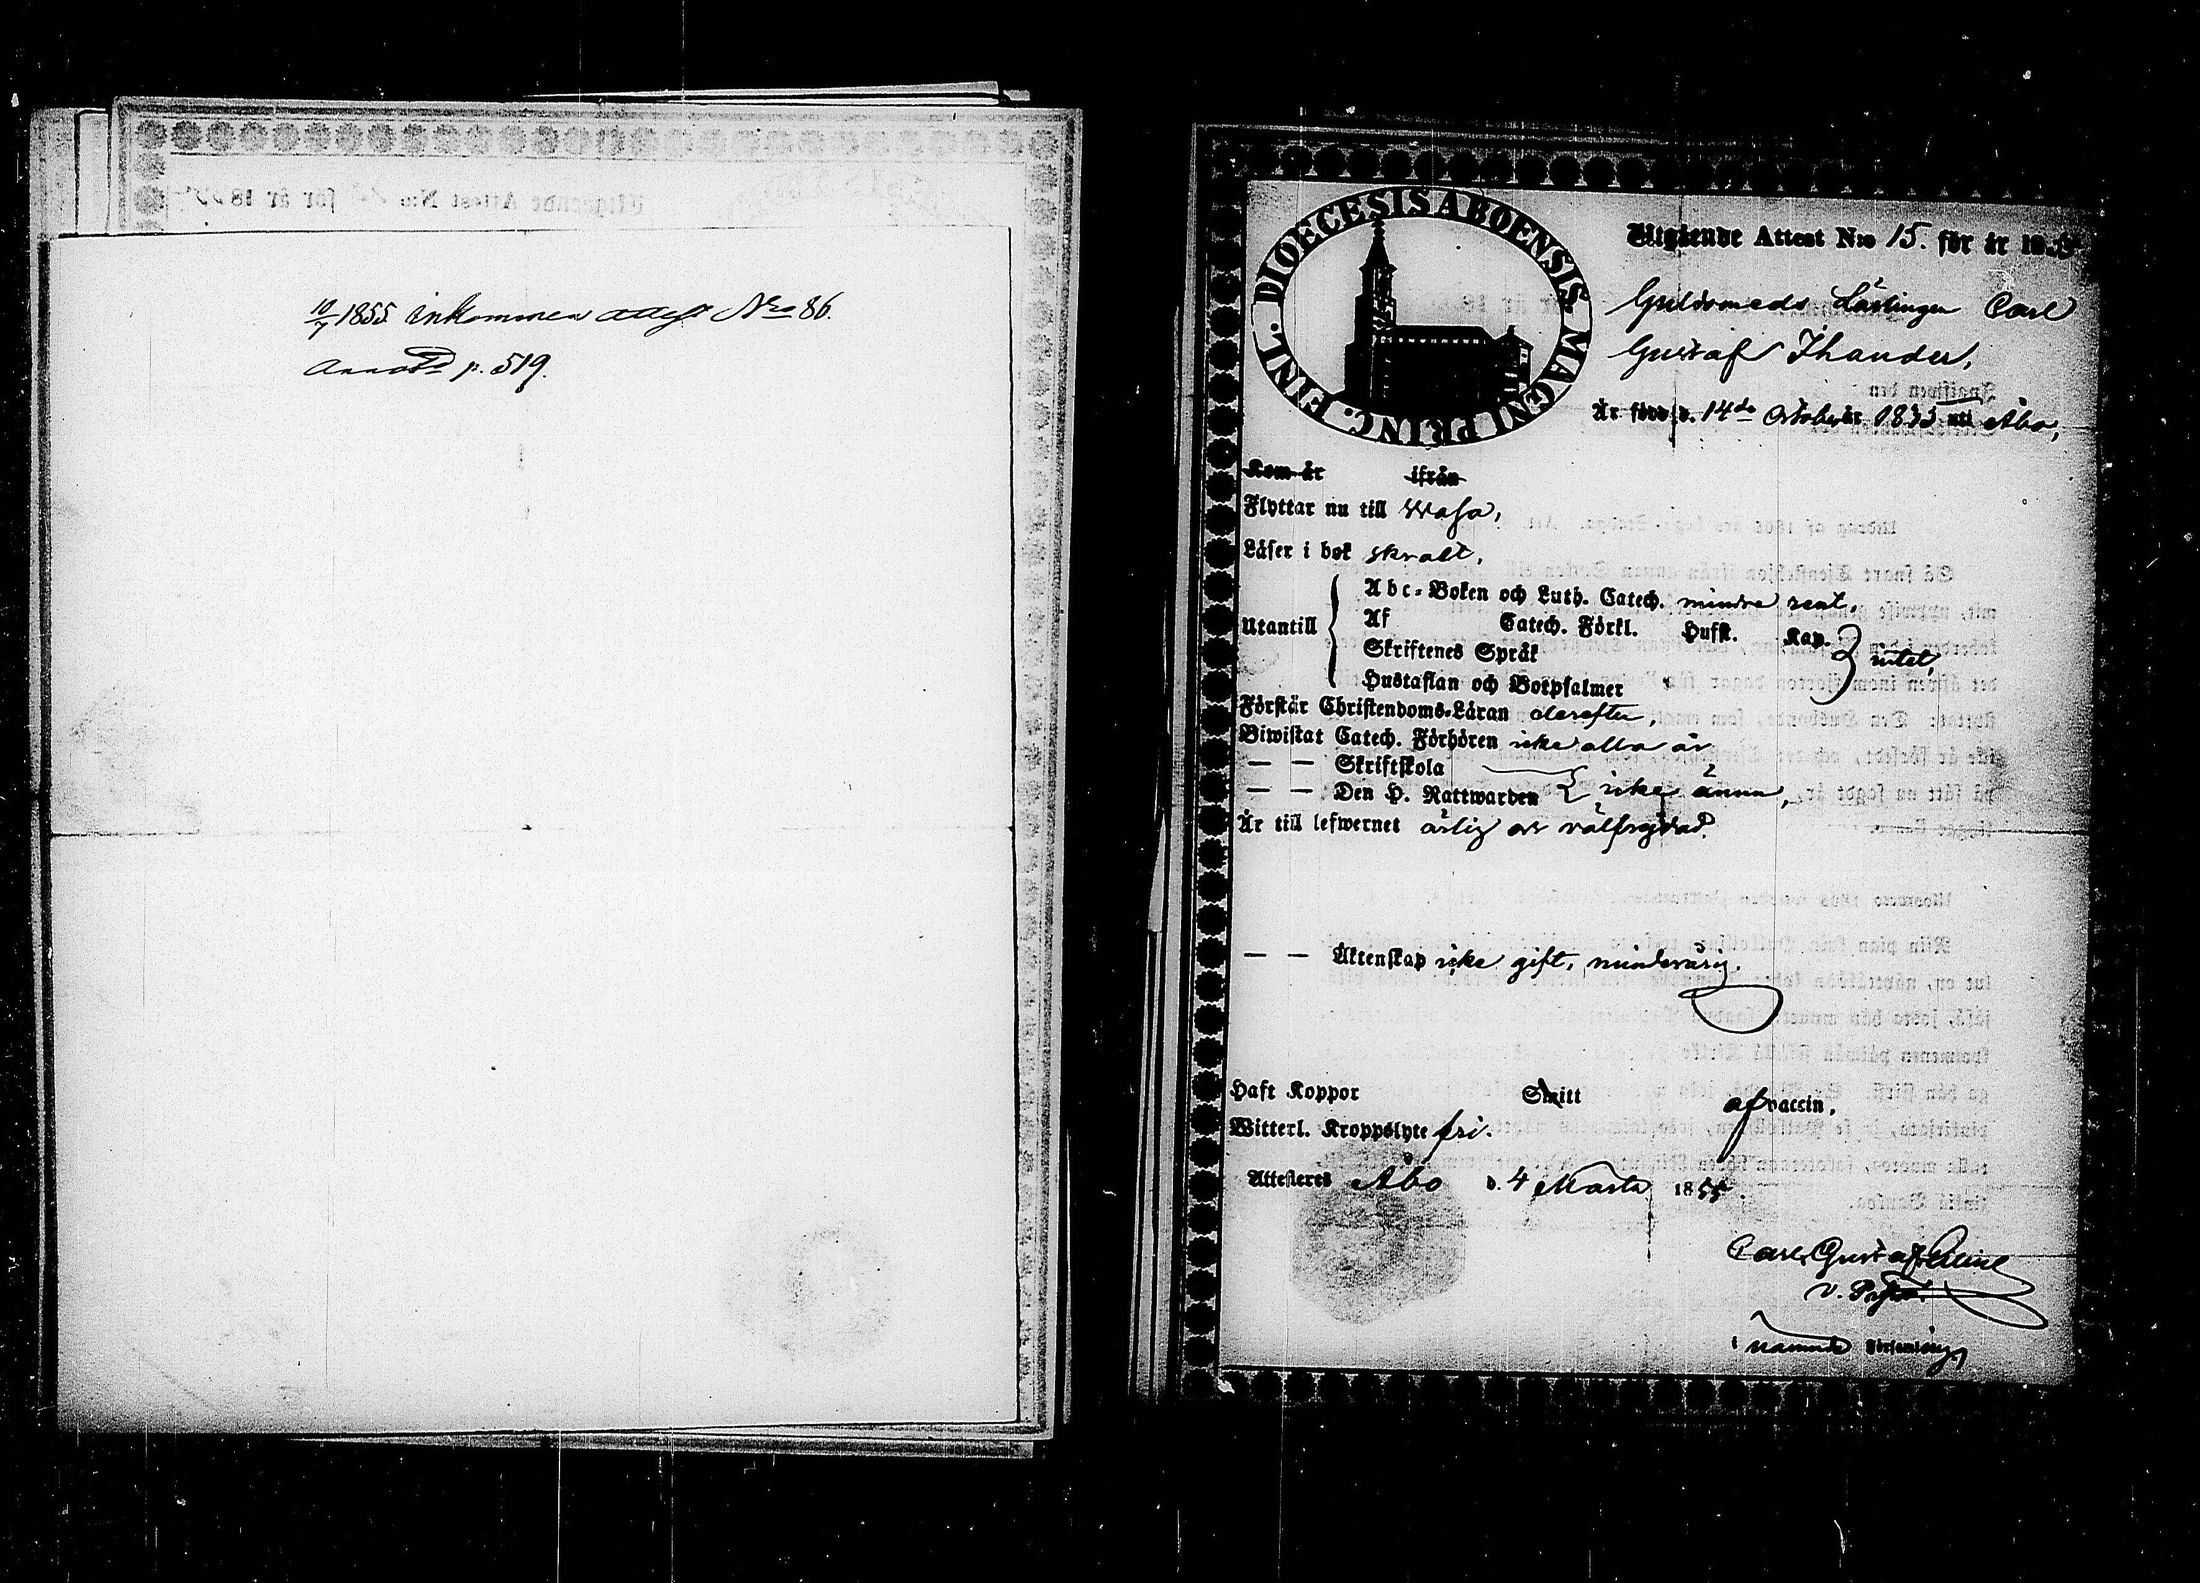 10/7 1855 inkommen attest Nro 86.
Annot. p. 519.
DIOECESIS ABOENSIS MAGNI PRINC. FINL.
Utgående Attest N:o 15. för år 1855
Guldsmeds Lärlingen Carl
Gustaf Thander,
Är född d. 14de October år 1835 uti Åbo,
Kom år ifrån
Flyttar nu till Wasa,
Läser i bok skralt,
Utantill
Abc-Boken och Luth. Catech. mindre rent,
Af Catech. Förkl. Hufst. Kap.
Skriftenes Språk intet,
Hustaflan och Botpsalmer
Förstår Christendoms-Läran derefter,
Biwistat Catech. Förhören icke alla år
— — Skriftskola
— — Den H. Nattwarden icke ännu,
Är till lefwernet ärlig och välfrejdad.
— — Äktenskap icke gift, minderårig.
Haft Koppor Smitt af vaccin,
Witterl. Kroppslyte fri.
Attesteras Åbo d. 4 Martii 1855.
Carl Gustaf
v. Past.
i nämnde Församling,